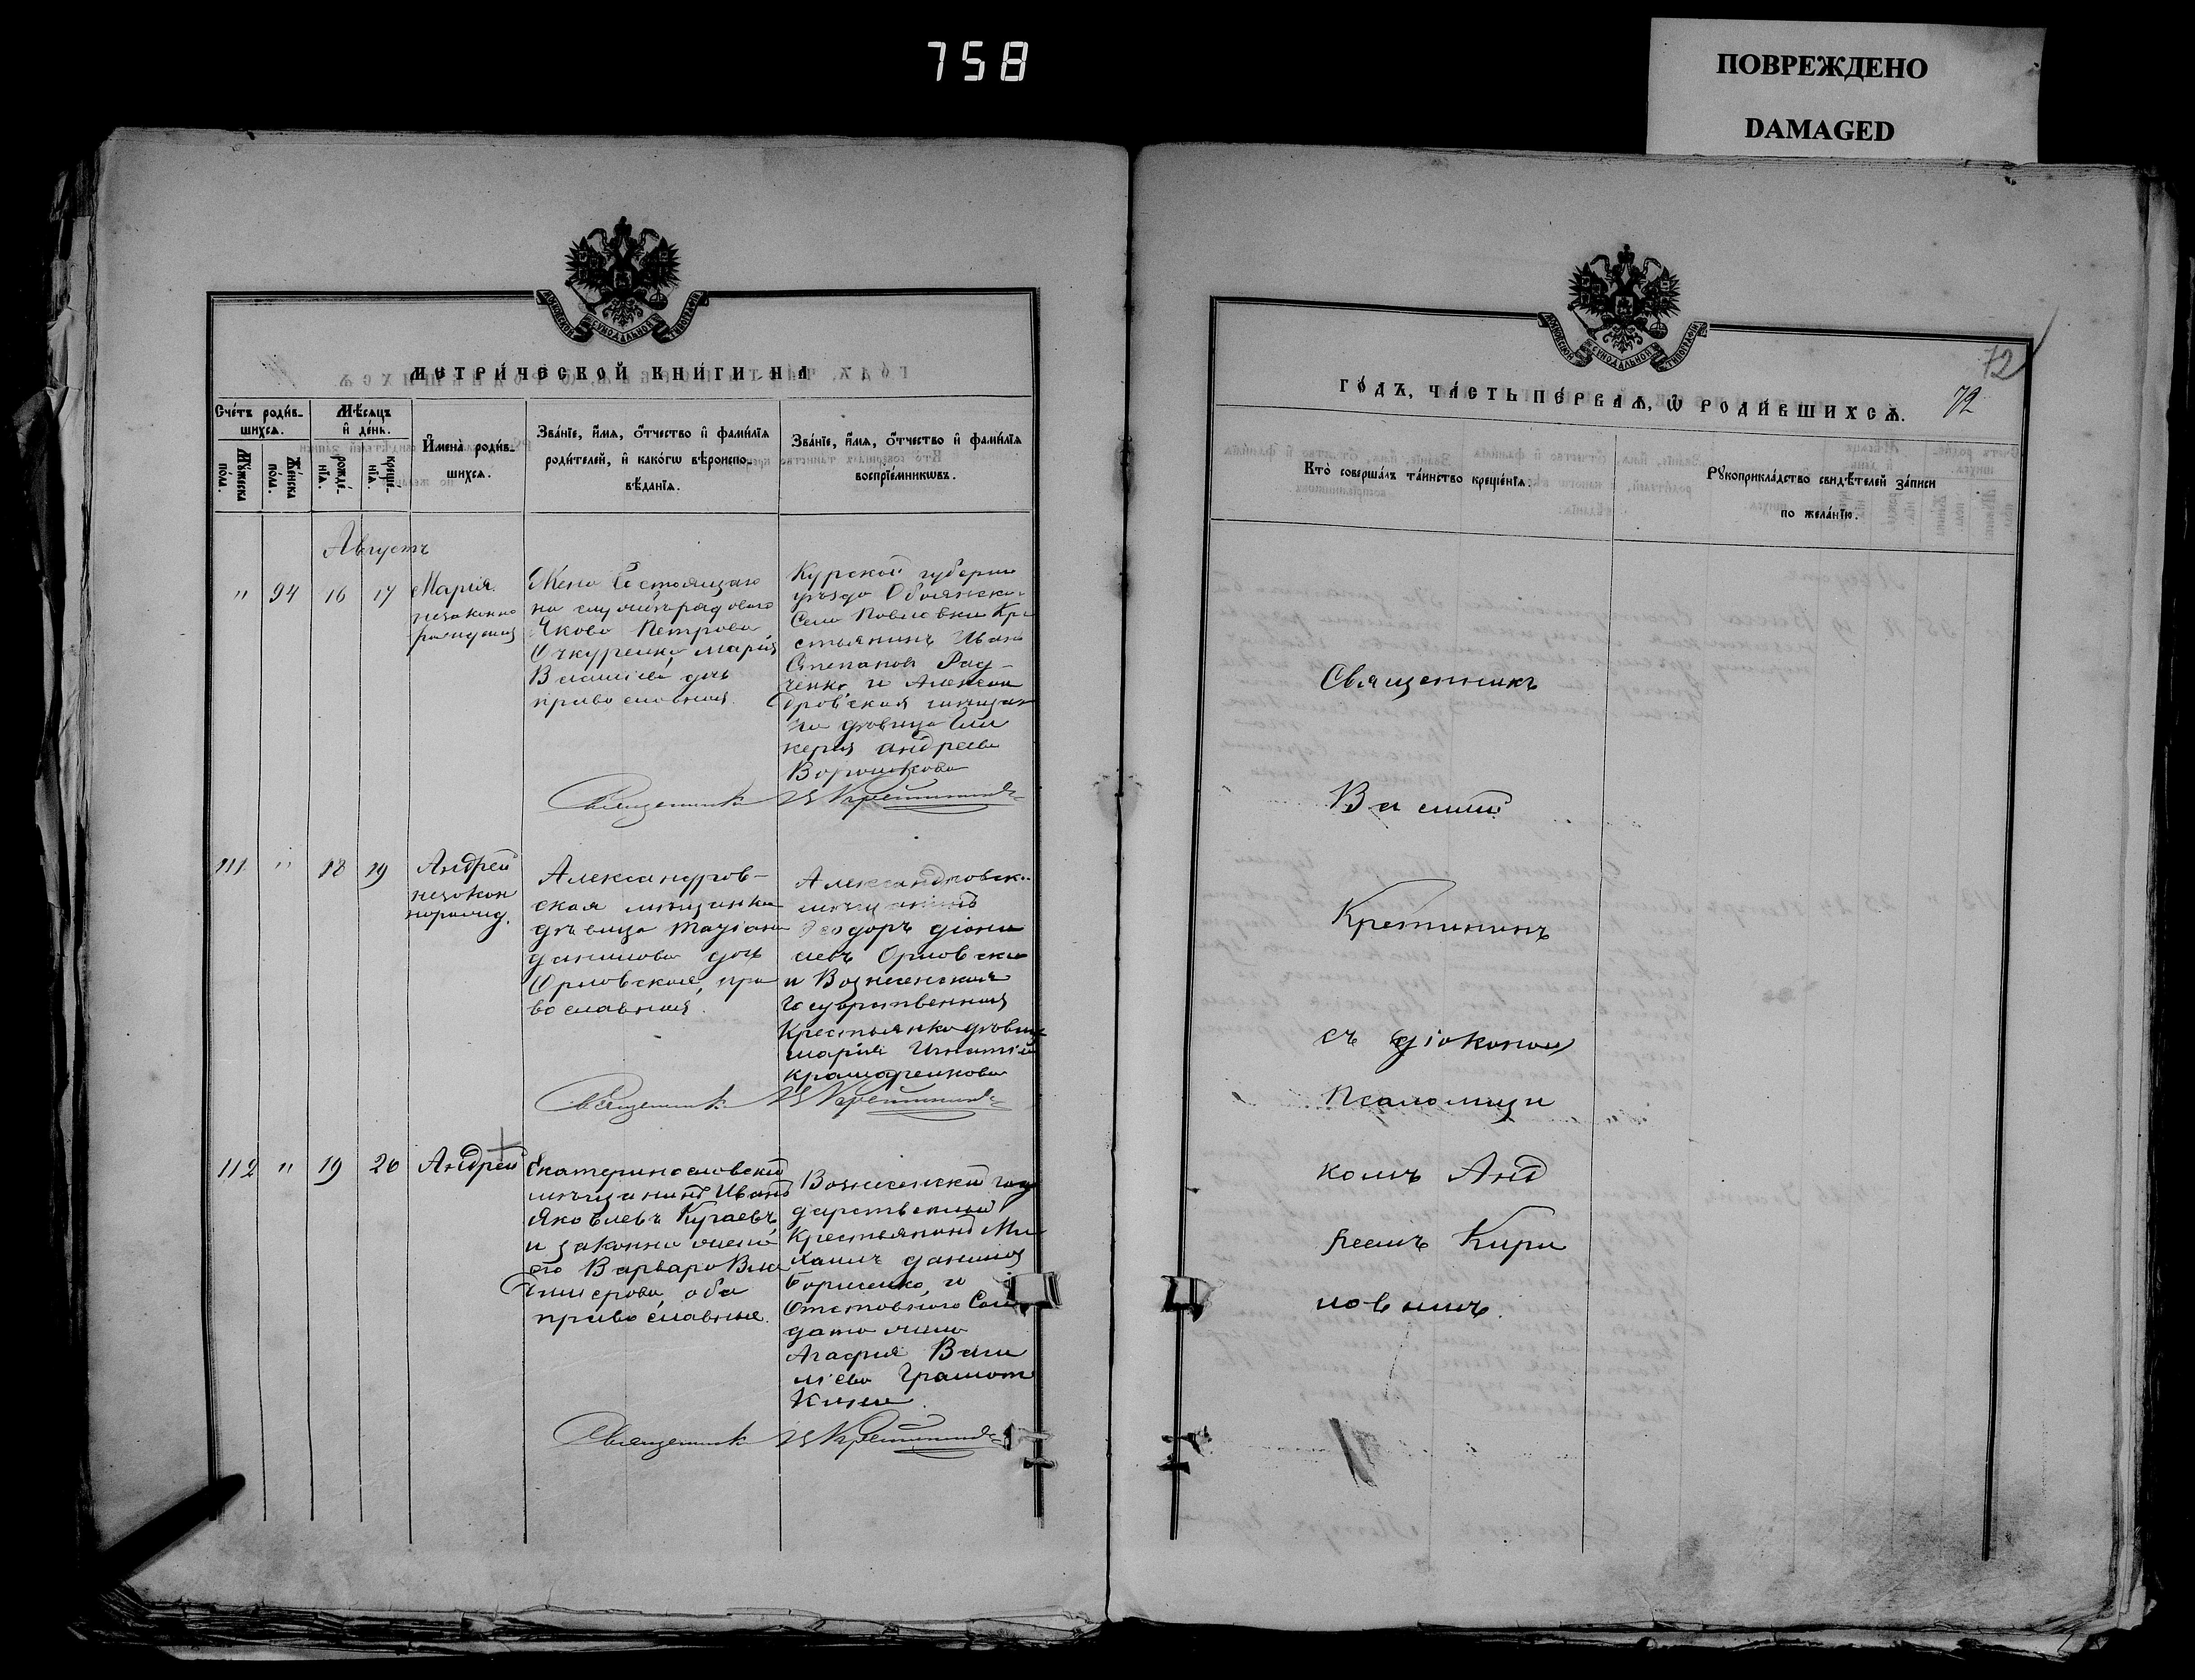 758
ПОВРЕЖДЕНО
DAMAGED
МОСКОВСКОЙ СѴНОДАЛЬНОЙ ТИПОГРАФІИ
МЕТРИ́ЧЕСКОЙ КНИ́ГИ НА
Сче́тъ роди́в-
шихсѧ.
Мѣ́сѧцъ
и҆ де́нь.
Мꙋ́жеска
по́ла.
Же́нска
по́ла.
рожде́-
нїѧ.
креще́-
нїѧ.
И҆мена̀ роди́в-
шихсѧ.
Зва́нїе, и҆́мѧ, ѻ҆́тчество и҆ фами́лїѧ
роди́телей, и҆ како́гѡ вѣроиспо-
вѣ́данїѧ.
Зва́нїе, и҆́мѧ, ѻ҆́тчество и҆ фами́лїѧ
воспрїе́мникѡвъ.
Августъ
" 94 16 17
Марія
незаконно
рожденная
Жена Состоящаго
на службѣ рядового
Якова Петрова
Очкуренка, Марія
Василіева дочь
православная.
Курской губерніи
уѣзда Обоянска
Села Павловки Кре
стьянинъ Иванъ
Степановъ Рад-
ченко, и Алексан
дровская мѣщан
ка дѣвица Гли
керія Андреева
Ворошкова
Священникъ В Кретининъ
111 " 18 19
Андрей
незакон
норожд.
Александров-
ская мѣщанка
дѣвица Татіана
Данилова дочь
Орловская, пра
вославная.
Александровск.
мѣщанинъ
Ѳеодоръ Діони
сіевъ Орловскій
и Вознесенская
Государственная
Крестьянка дѣвица
Марія Игнатіева
Крамаренкова
Священникъ В Кретининъ
112 " 19 26
Андрей
Екатеринославскій
мѣщанинъ Иванъ
Яковлевъ Кугаевъ
и законная жена
его Варвара Вла
димерова, оба
православные.
Вознесенскій госу
дарственный
Крестьянинъ Ми
хаилъ Даниловъ
Борисенко, и
Отставного Сол
дата жена
Агафія Васи
ліева Грамот
кина.
Священникъ В Кретининъ
МОСКОВСКОЙ СѴНОДАЛЬНОЙ ТИПОГРАФІИ
72
ГО́ДЪ, ЧА́СТЬ ПЕ́РВАѦ, Ѡ҆ РОДИ́ВШИХСѦ.
72
Кто̀ соверша́лъ та́инство креще́нїѧ.
Рꙋкоприкла́дство свидѣ́телей за́писи
по жела́нїю.
Священникъ
Василій
Кретининъ
съ діакономъ
Псаломщи
комъ Анд
реемъ Кири
ловымъ.